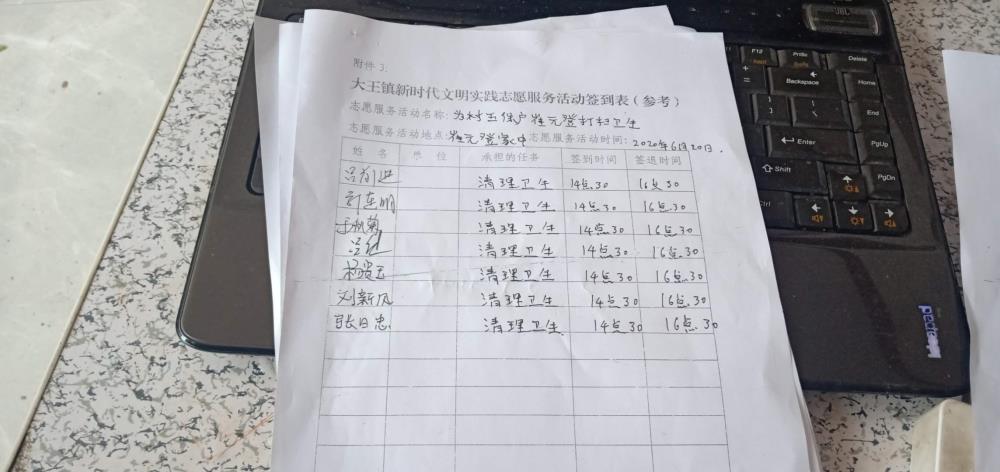 附件3:
大王镇新时代文明实践志愿服务活动签到表(参考)
志愿服务活动名称:为村五保户崔元登打扫卫生
志愿服务活动地点:崔元登家中 志愿服务活动时间:2020年6月20日.
姓名 单位 承担的任务 签到时间 签退时间
清理卫生 14点.30 16点.30
清理卫生 14点.30 16点.30
清理卫生 14点.30 16点.30
清理卫生 14点.30 16点.30
清理卫生 14点.30 16点.30
刘新凤 清理卫生 14点.30 16点.30
张日忠 清理卫生 14点.30 16点.30
JBL
F12
PrtSc
Delete
Backspace
Home
Enter
PgUp
Shift
PgDn
Ctrl
End